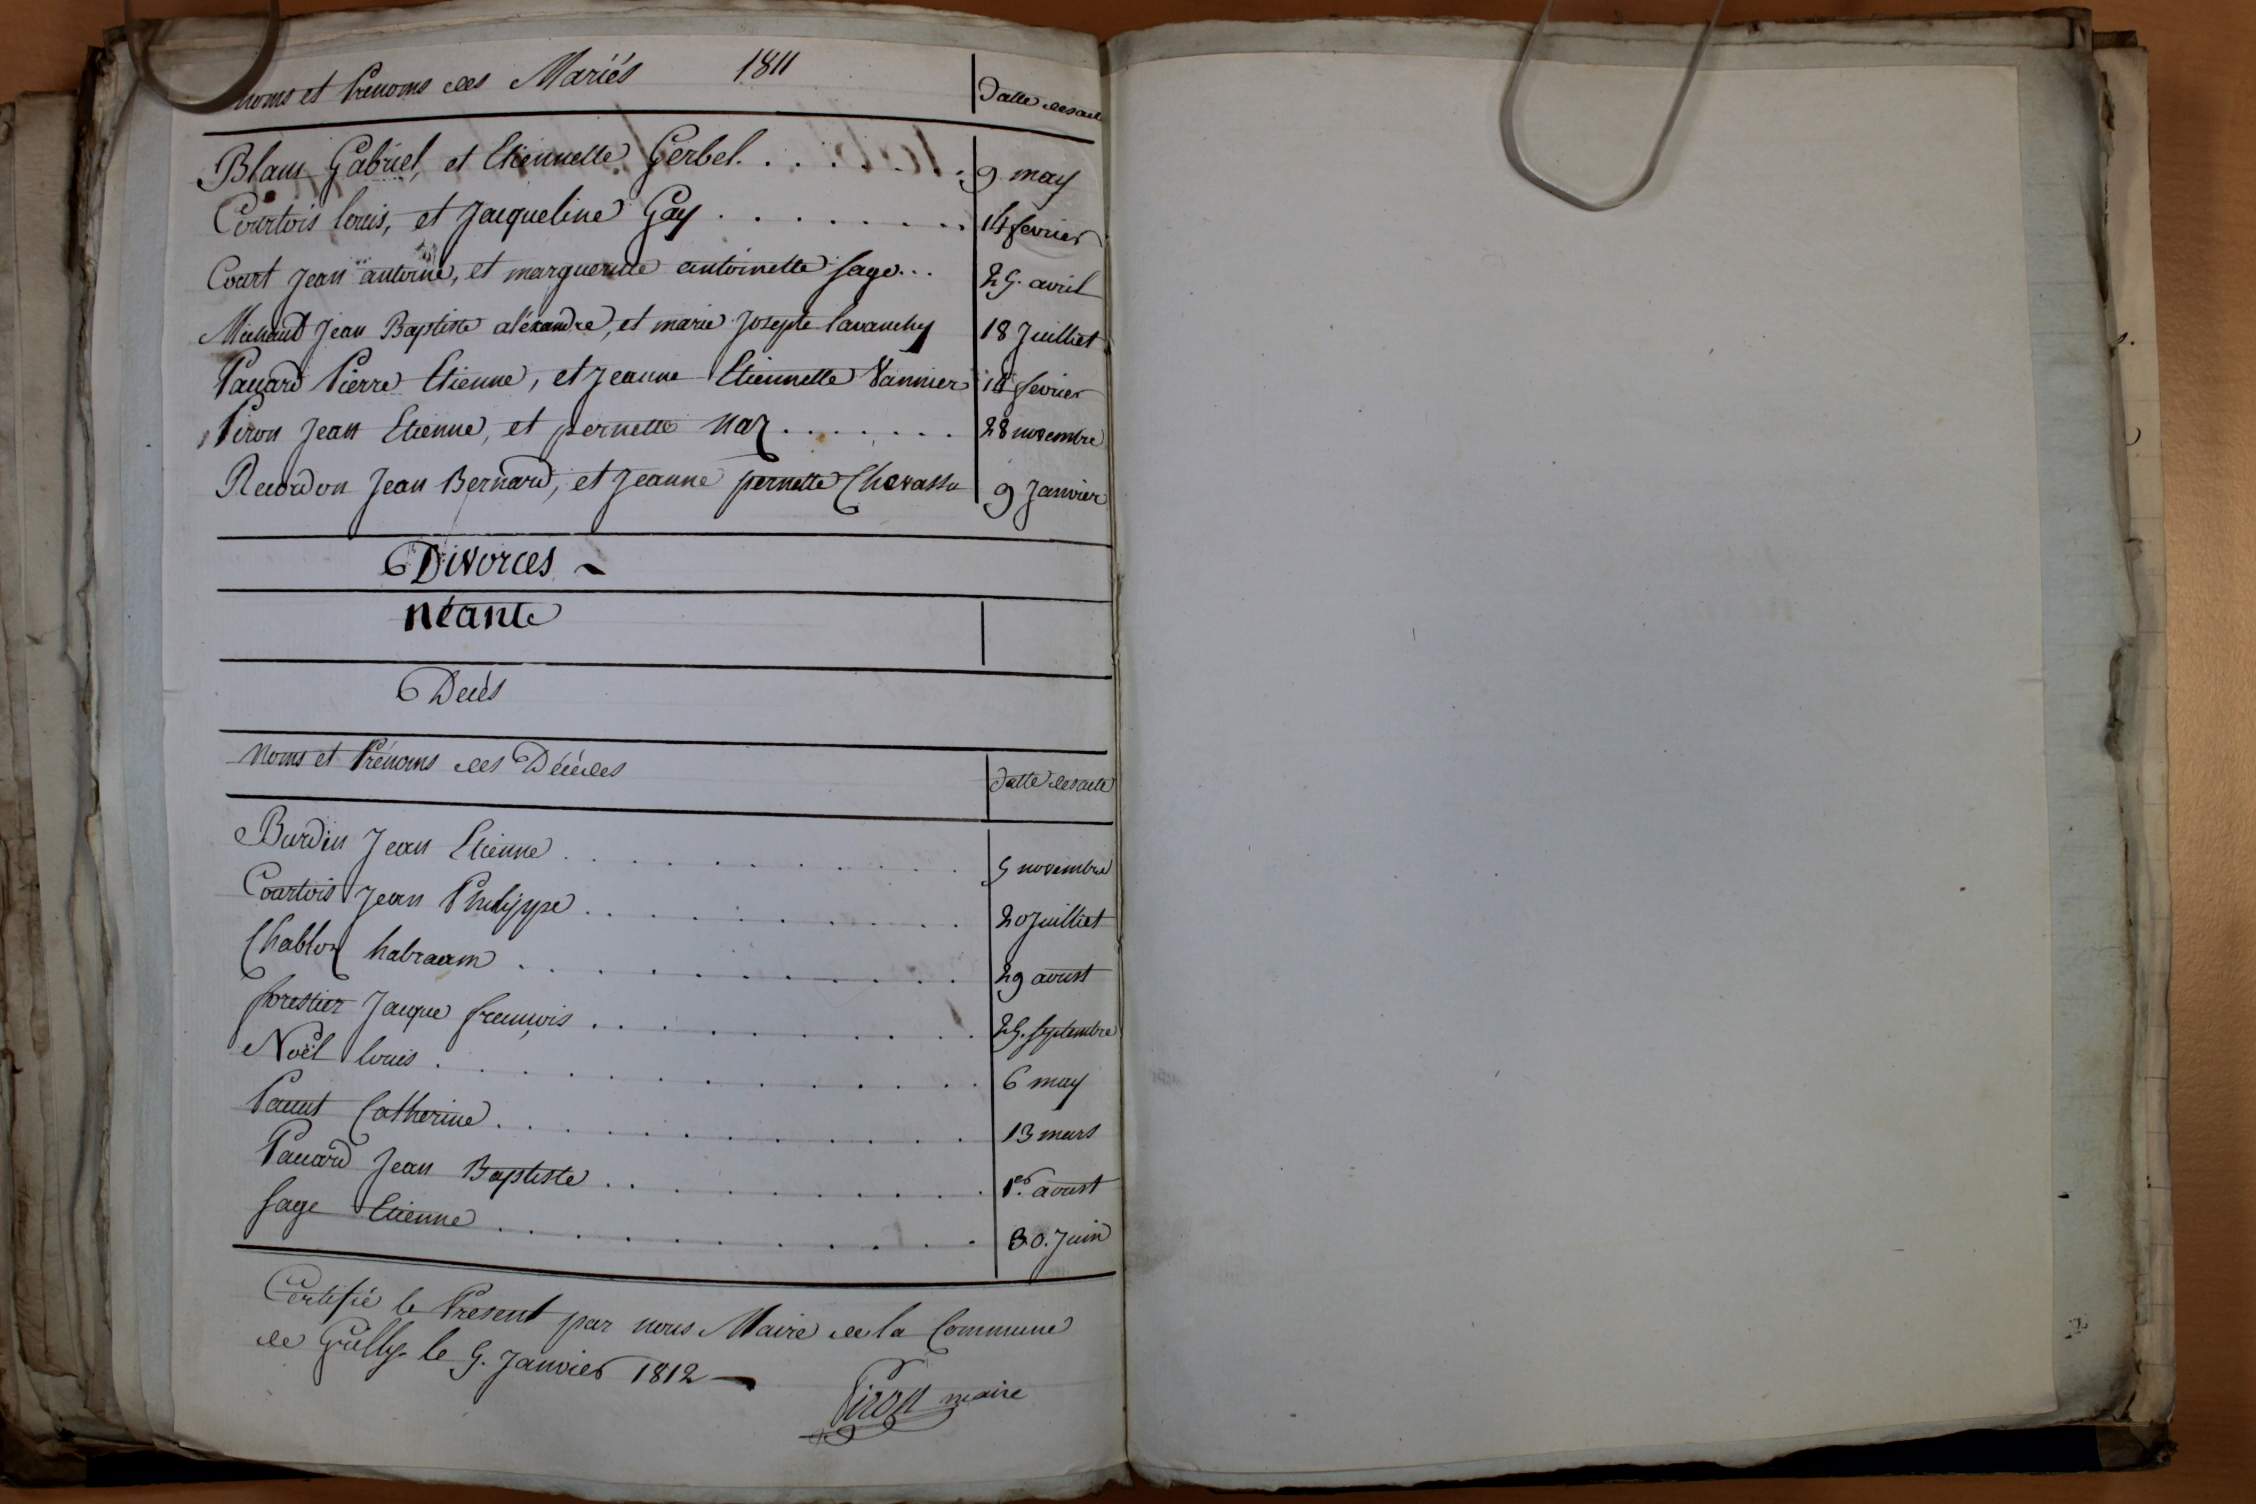 Noms et Prenoms des Mariés 1811 Datte des acte
Blanc Gabriel, et Etiennette Gerbel. . . . . . 9 may
Courtois louis, et Jacqueline Gay . . . . . . . . 14 fevrier
Court Jean antoine, et marguerite antoinette Sage... 25. avril
Michaud Jean Baptiste aléxandre, et marie Josepte lavanchy 18 Juilliet
Panard Pierre Etienne, et Jeanne Etiennette Vannier 14 fevrier
Piron Jean Etienne, et pernette Naz . . . . . . . 28 novembre
Recordon Jean Bernard, et Jeanne pernette Chevassu 9 Janvier
Divorces
Néante
Décés
Noms et Prénoms des Décédes Datte des acte
Burdin Jean Etienne . . . . . . . . . . 5 novembre
Courtois Jean Philippe . . . . . . . . . . 20 Juilliet
Chabloz habraam . . . . . . . . . . . 29 aoust
forestier Jacque francois . . . . . . . . . . 25. Septembre
Noël louis . . . . . . . . . . . . 6 may
Catherine . . . . . . . . . . . 13 mars
Panard Jean Baptiste . . . . . . . . . 1er. aoust
Sage Etienne . . . . . . . . . . . 30. Juin
Certifié le Present par nous Maire de la Commune
de Grilly le 5. Janvier 1812
Piron maire